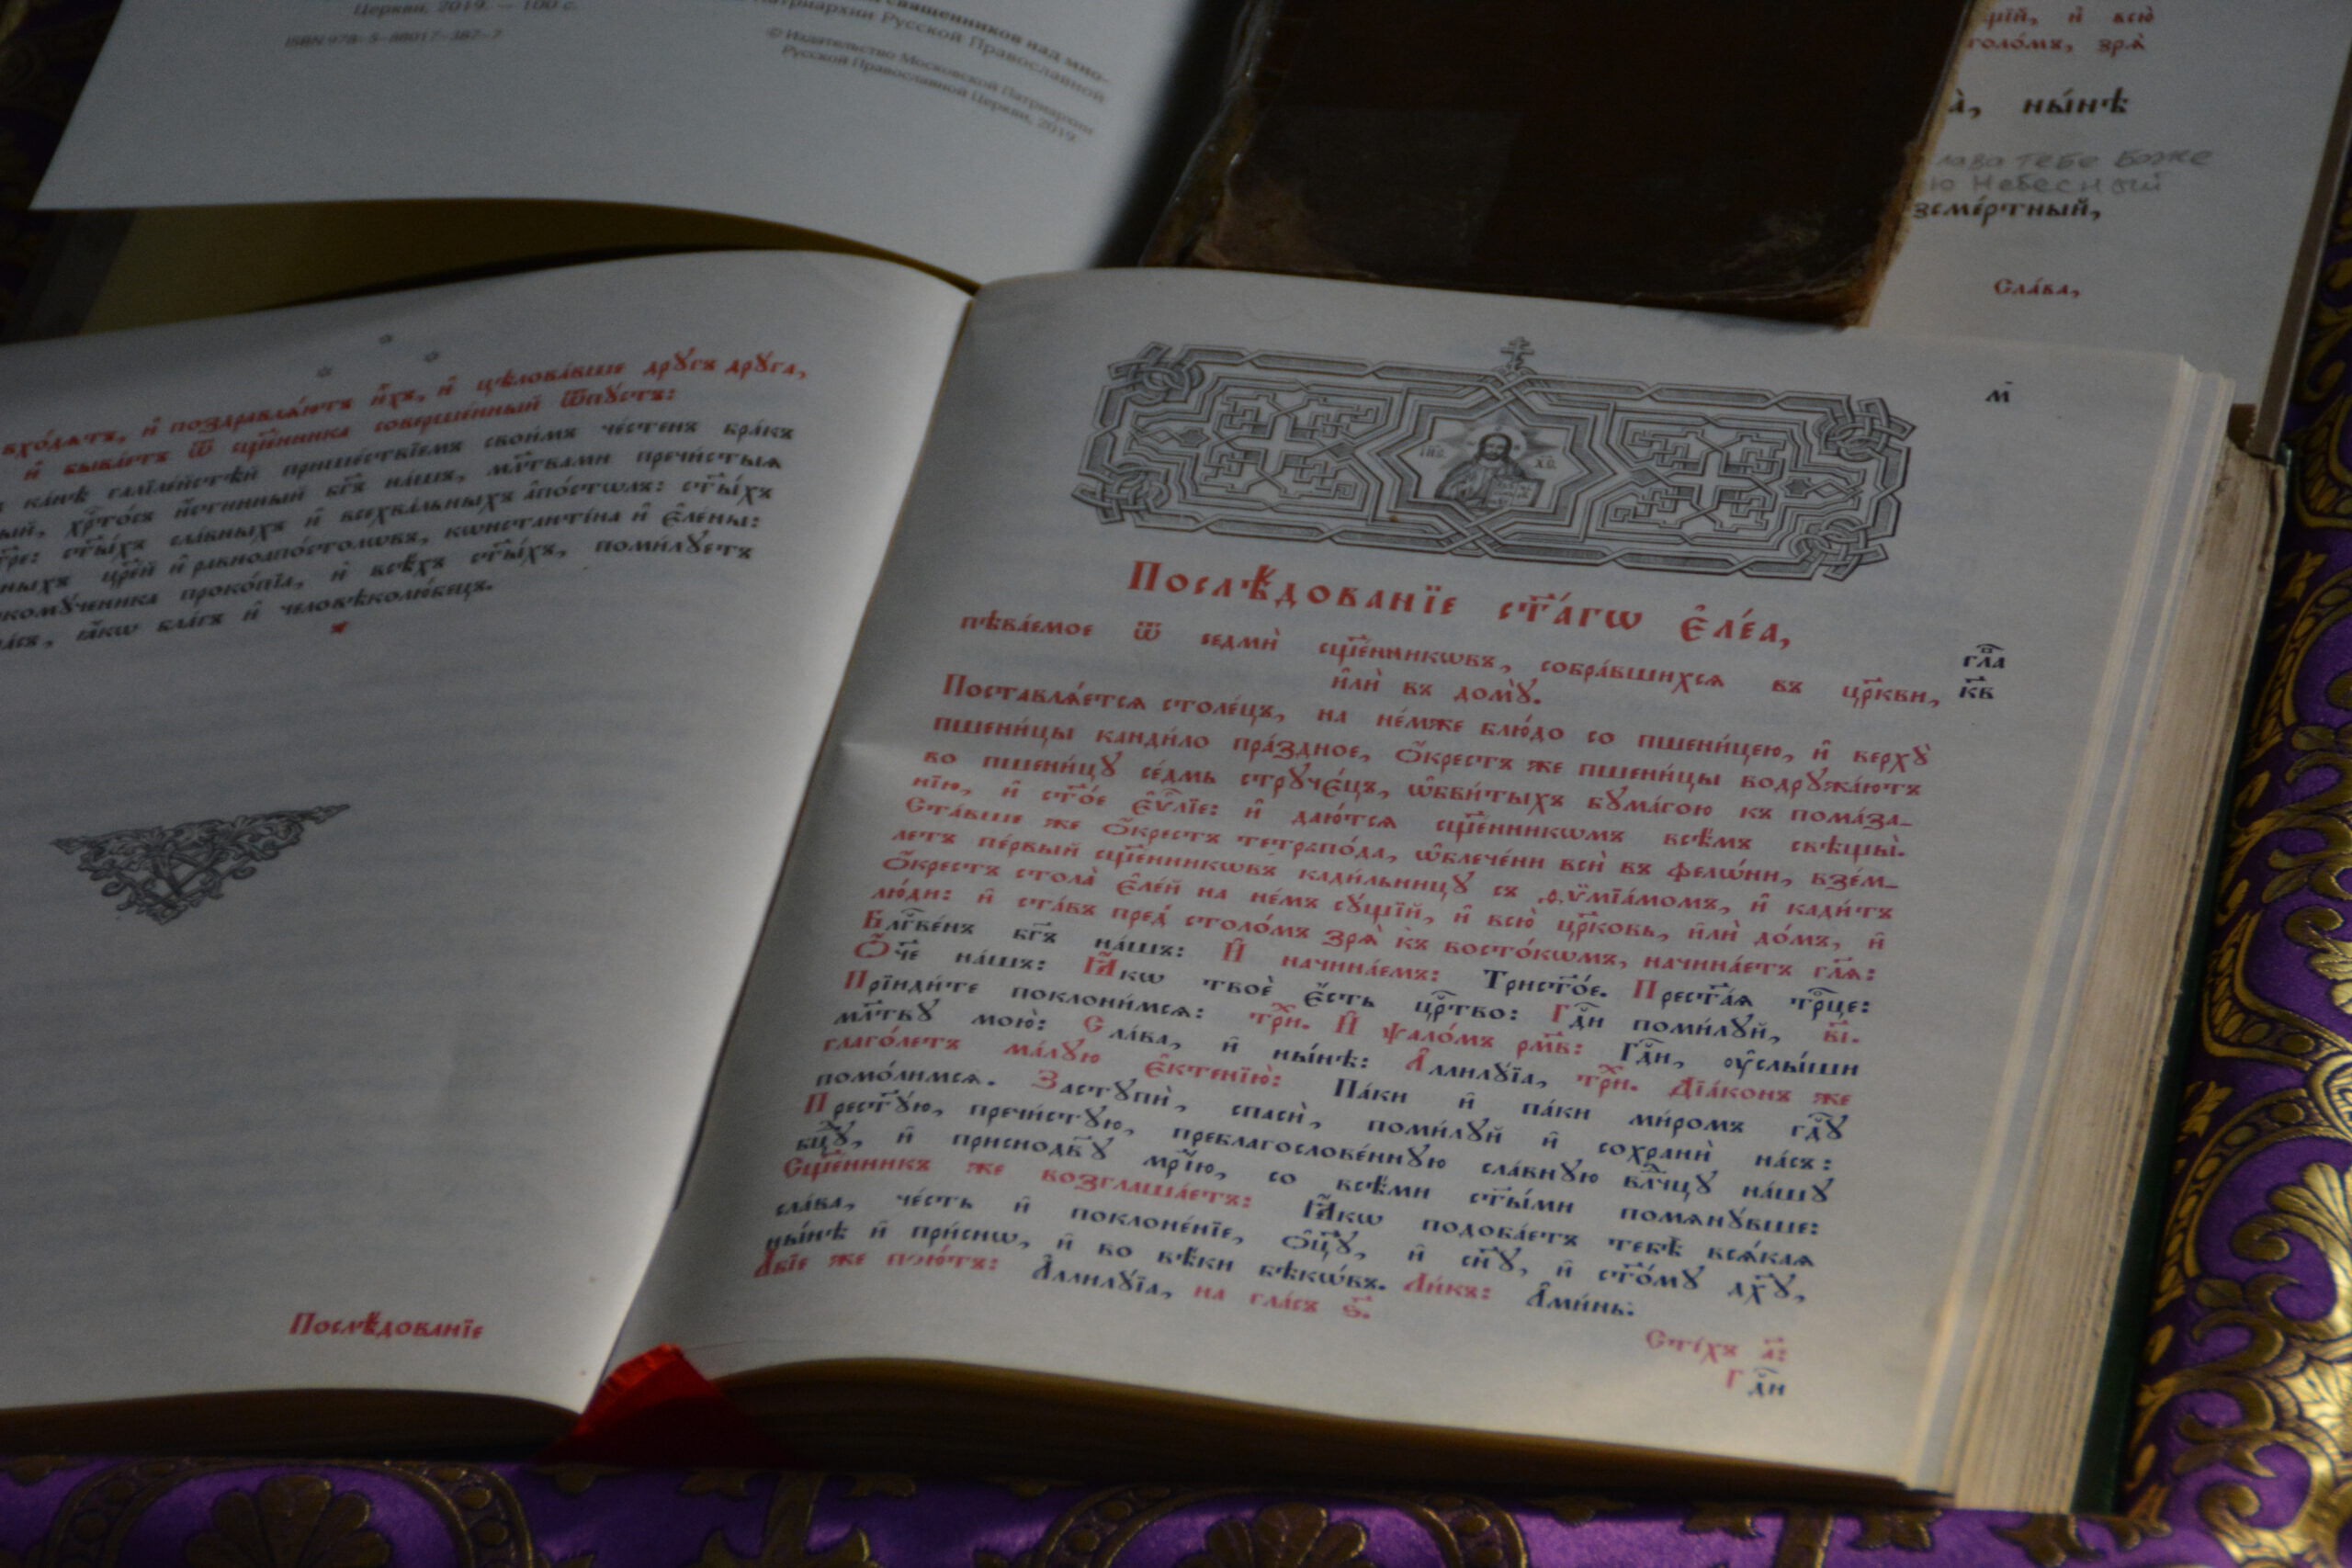 Церкви, 2019. — 100 с.
ISBN 978-5-88017-387-7
священников над мно-
Патриархии Русской Православной
© Издательство Московской Патриархии
Русской Православной Церкви, 2019
щїй, и҆ всю̀
столо́мъ, зрѧ̀
ны́нѣ
тебе Боже
Небесный
Сла́ва,
вхо́дѧтъ, и҆ поздравлѧ́ютъ и҆̀хъ, и҆ цѣлова́вше дрꙋ́гъ дрꙋ́га,
и҆ быва́етъ ѿ сщ҃е́нника соверше́нный ѿпꙋ́стъ:
ка́нѣ галїле́йстѣй прише́ствїемъ свои́мъ че́стенъ бра́къ
хрⷭ҇то́съ и҆́стинный бг҃ъ на́шъ, мл҃твами пречи́стыѧ
ст҃ы́хъ сла́вныхъ и҆ всехва́льныхъ а҆пⷭ҇то́лѡвъ: ст҃ы́хъ
цр҃е́й и҆ равноапо́столѡвъ, кѡнстанті́на и҆ є҆ле́ны:
прокопі́а, и҆ всѣ́хъ ст҃ы́хъ, поми́лꙋетъ
ꙗ҆́кѡ бл҃гъ и҆ человѣколю́бецъ.
Послѣ́дованїе
м҃
Послѣ́дованїе ст҃а́гѡ є҆ле́а,
пѣва́емое ѿ седмѝ сщ҃е́нникѡвъ, собра́вшихсѧ въ цр҃кви,
и҆лѝ въ домꙋ̀.
гла҃
к҃в
Поставлѧ́етсѧ столе́цъ, на не́мже блю́до со пшени́цею, и҆ верхꙋ̀
пшени́цы канди́ло пра́здное, ѡ҆́крестъ же пшени́цы водрꙋжа́ютъ
во пшени́цꙋ се́дмь стрꙋче́цъ, ѡ҆бви́тыхъ бꙋма́гою къ пома́за-
нїю, и҆ ст҃о́е є҆ѵⷢ҇лїе: и҆ даю́тсѧ сщ҃е́нникѡмъ всѣ̑мъ свѣщы̀.
Ста́вше же ѡ҆́крестъ тетрапо́да, ѡ҆блече́ни всѝ въ фелѡ́ни, взе́м-
летъ пе́рвый сщ҃е́нникѡвъ кади́льницꙋ съ ѳѷмїа́момъ, и҆ кади́тъ
ѡ҆́крестъ стола̀ є҆ле́й на не́мъ сꙋ́щїй, и҆ всю̀ цр҃ковь, и҆лѝ до́мъ, и҆
лю́ди: и҆ ста́въ пред̾ столо́мъ зрѧ̀ къ восто́кѡмъ, начина́етъ гл҃ѧ:
Блгⷭ҇ве́нъ бг҃ъ на́шъ: И҆ начина́емъ: Трист҃о́е. Прест҃а́ѧ трⷪ҇це:
Ѻ҆́ч҃е на́шъ: Ꙗ҆́кѡ твоѐ є҆́сть црⷭ҇тво: Гдⷭ҇и поми́лꙋй, в҃і.
Прїиди́те поклони́мсѧ: три́ж. И҆ ѱало́мъ рм҃в: Гдⷭ҇и, ᲂу҆слы́ши
мл҃твꙋ мою̀: Сла́ва, и҆ ны́нѣ: А҆ллилꙋ́їа, три́ж. Дїа́конъ же
глаго́летъ ма́лꙋю є҆ктенїю̀: Па́ки и҆ па́ки ми́ромъ гдⷭ҇ꙋ
помо́лимсѧ. Застꙋпѝ, спасѝ, поми́лꙋй и҆ сохранѝ на́съ:
Прест҃ꙋ́ю, пречи́стꙋю, преблагослове́ннꙋю сла́внꙋю влⷣчцꙋ на́шꙋ
бцⷣꙋ, и҆ приснодв҃ꙋ мр҃і́ю, со всѣ́ми ст҃ы́ми помѧнꙋ́вше:
Сщ҃е́нникъ же возглаша́етъ: Ꙗ҆́кѡ подоба́етъ тебѣ̀ всѧ́каѧ
сла́ва, че́сть и҆ поклоне́нїе, ѻ҆ц҃ꙋ̀, и҆ сн҃ꙋ, и҆ ст҃о́мꙋ дх҃ꙋ,
ны́нѣ и҆ при́снѡ, и҆ во вѣ́ки вѣкѡ́въ. Ли́къ: А҆ми́нь:
А҆́бїе же пою́тъ: А҆ллилꙋ́їа, на гла́съ ѕ҃.
Сті́хъ а҃:
Гдⷭ҇и